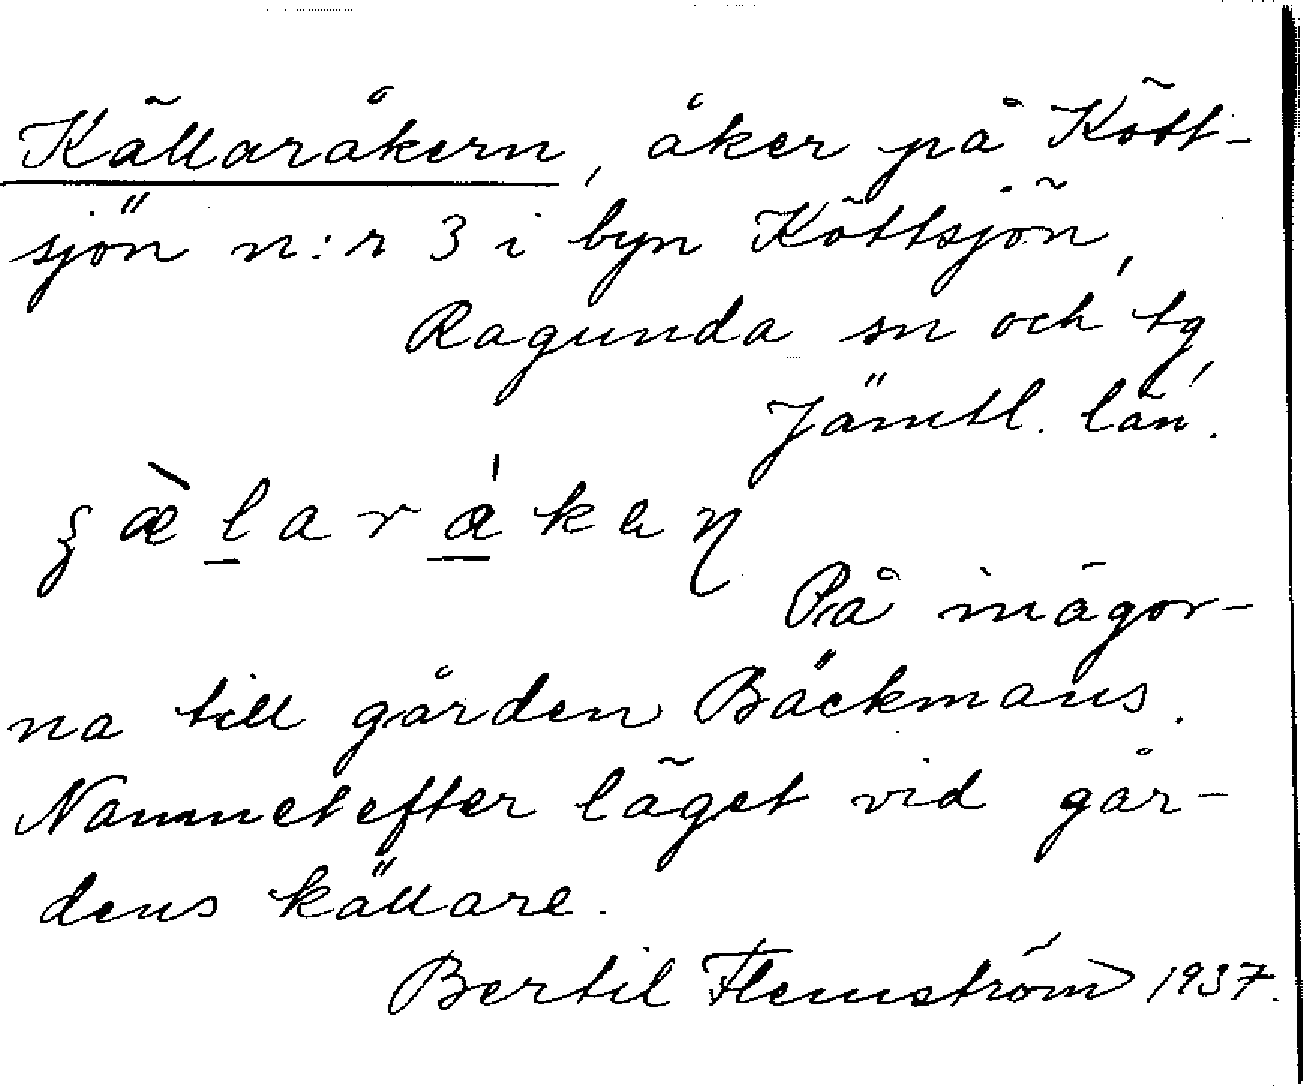 Källaråkern, åker på Kött-
sjön n:r 3 i byn Köttsjön,
Ragunda sn och tg,
Jämtl. län.
På inägor-
na till gården Bäckmans.
Namnet efter läget vid går-
dens källare.
Bertil Flemström 1937.